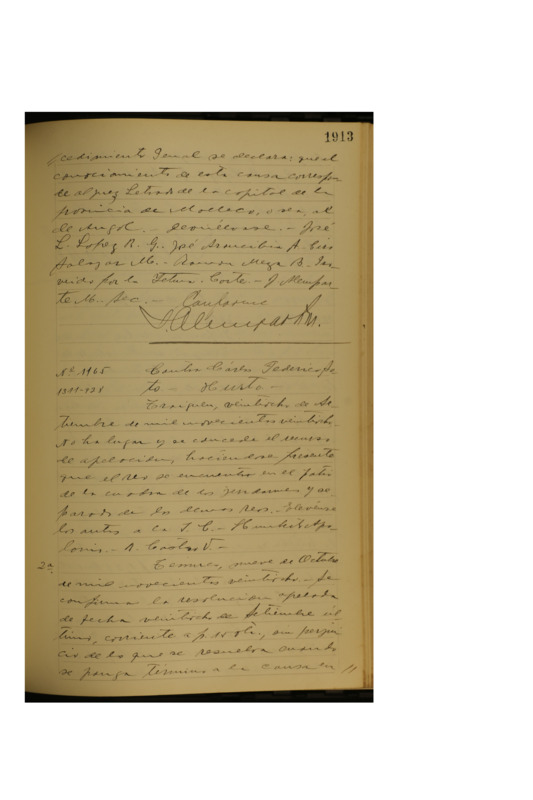 1913
cedimiento Penal se declara: que el
conocimiento de esta causa correspon
de al juez Letrado de la capital de la
provincia de Malleco, o sea, al
de Angol. - Devuélvanse. - José
L. Lopez R. G. José Arancibia A. Luis
Salazar M. - Ramon Meza B. Pro
veido por la Iltma. Corte - J Alempar
te M. Sec. - Conforme
J. Alemparte M.
Nº 1165 Contra Cárlos Federico
to - Hurto -
Traiguen, veintiocho de Se
tiembre de mil novecientos veintiocho.
No ha lugar y se concede el recurso
de apelacion, haciéndose presente
que el reo se encuentra en el patio
de la cuadra de los jendarmes y se
parado de los demas reos. Elévense
los autos a la I. C. -
A. Castro V. -
2a. Temuco, nueve de Octubre
de mil novecientos veintiocho. Se
confirma la resolucion apelada
de fecha veintiocho de Setiembre úl
timo, corriente a f. sin perjui
cio de lo que se resuelva cuando
se ponga término a la causa en //